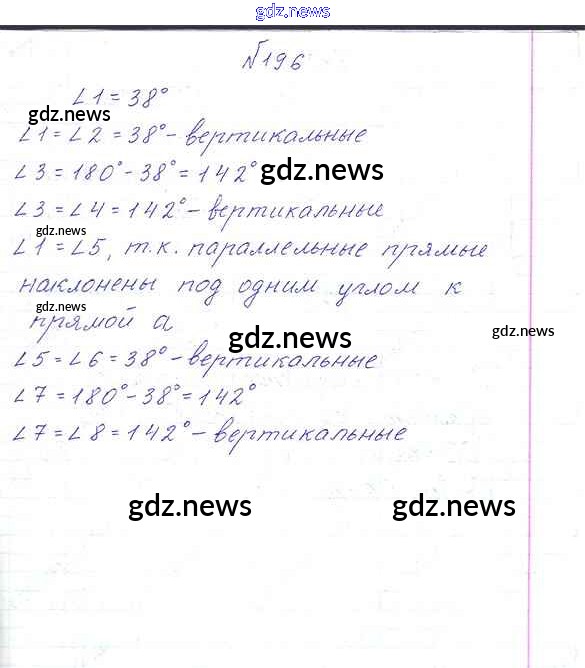 gdz.news
№196
∠1 = 38°
gdz.news
∠1 = ∠2 = 38° - вертикальные
∠3 = 180° - 38° = 142° gdz.news
∠3 = ∠4 = 142° - вертикальные
gdz.news
∠1 = ∠5, т.к. параллельные прямые
наклонены под одним углом к
gdz.news
прямой a
gdz.news gdz.news
∠5 = ∠6 = 38° - вертикальные
∠7 = 180° - 38° = 142°
∠7 = ∠8 = 142° - вертикальные
gdz.news gdz.news